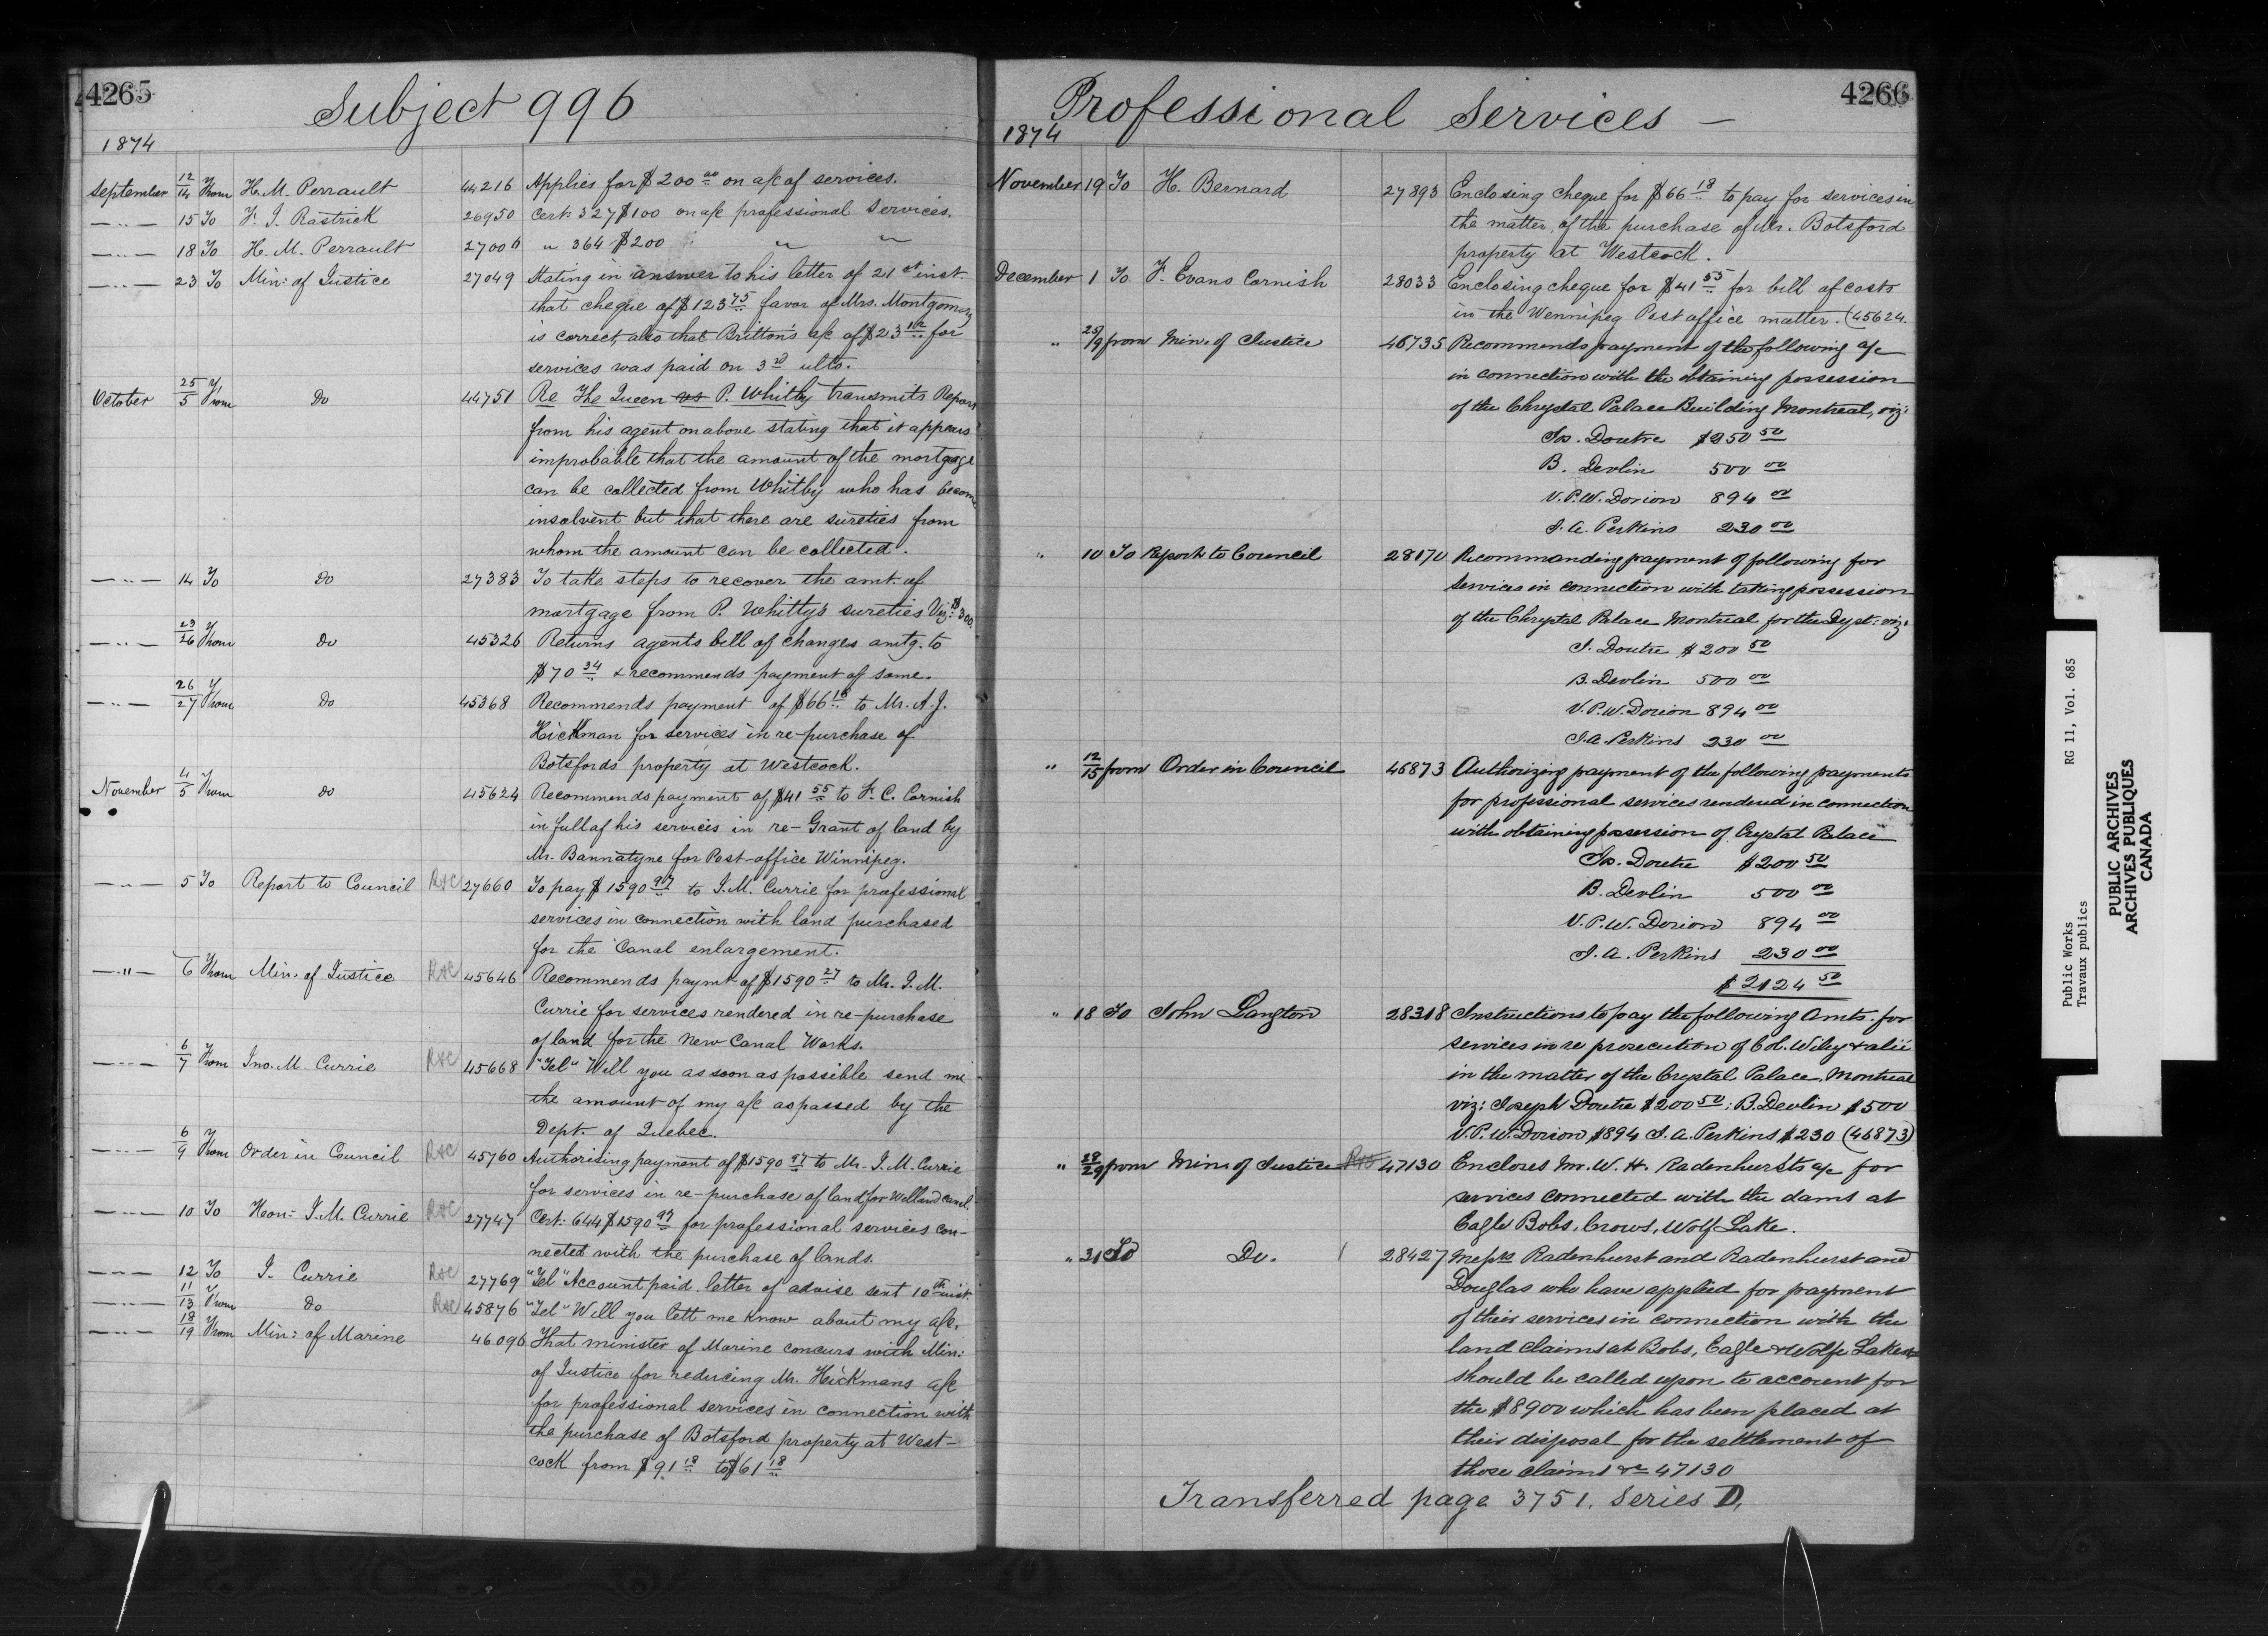 4265
Subject 996
1874
September 12/14 From H. M. Perrault 44216 Applies for $200 00 on a/c of services.
— " — 15 To F. J. Rastrick 26950 Cert: 327 $100 on a/c professional Services.
— " — 18 To H. M. Perrault 27006 " 364 $200 " "
— " — 23 To Min: of Justice 27049 Stating in answer to his letter of 21st inst.
that cheque of $123 75 favor of Mrs. Montgomery
is correct, also that Britton's a/c of $23 for
services was paid on 3rd ulto.
October 25/5 From Do 44751 Re The Queen vs P. Whitby transmits Report
from his agent on above stating that it appears
improbable that the amount of the mortgage
can be collected from Whitby who has become
insolvent but that there are sureties from
whom the amount can be collected.
— " — 14 To Do 27383 To take steps to recover the amt. of
mortgage from P. Whittys sureties Viz: $300.
— " — 23/26 From Do 45326 Returns agents bill of changes amtg. to
$70 34 & recommends payment of same.
— " — 26/27 From Do 45368 Recommends payment of $66 18 to Mr. A. J.
Hickman for services in re-purchase of
Botsfords property at Westcock.
November 4/5 From Do 45624 Recommends payment of $41 55 to F. C. Cornish
in full of his services in re-Grant of land by
Mr. Bannatyne for Post-office Winnipeg.
— " — 5 To Report to Council R&C 27660 To pay $1590 97 to J. M. Currie for professional
services in connection with land purchased
for the Canal enlargement.
— " — 6 From Min. of Justice R&C 45646 Recommends paymt of $1590 27 to Mr. J. M.
Currie for services rendered in re-purchase
of land for the New Canal Works.
— " — 6/7 From Jno. M. Currie R&C 45668 "Tel" Will you as soon as possible send me
the amount of my a/c as passed by the
Dept. of Quebec.
— " — 6/9 From Order in Council R&C 45760 Authorising payment of $1590 97 to Mr. J. M. Currie
for services in re-purchase of land for Welland Canal.
— " — 10 To Hon: J. M. Currie R&C 27747 Cert: 644 $1590 97 for professional services con-
nected with the purchase of lands.
— " — 12 To J. Currie R&C 27769 "Tel" Account paid letter of advise sent 10th inst.
— " — 11/13 From Do R&C 45876 "Tel" Will you lett me know about my a/c.
— " — 18/19 From Min: of Marine 46096 That minister of Marine concurs with Min:
of Justice for reducing Mr. Hickmans a/c
for professional services in connection with
the purchase of Botsford property at West-
cock from $91 18 to $61 18
4266
Professional Services —
1874
November 19 To H. Bernard 27893 Enclosing cheque for $66 18 to pay for services in
the matter of the purchase of Mr. Botsford
property at Westcock.
December 1 To F. Evans Cornish 28033 Enclosing cheque for $41 55 for bill of costs
in the Wennipeg Post office matter. (45624.
" 29/9 from Min. of Justice 46735 Recommends payment of the following a/c
in connection with the obtaining possession
of the Chrystal Palace Building Montreal, viz:
Jos. Doutre $250 50
B. Devlin 500 00
V. P. W. Dorion 894 00
J. A. Perkins 230 00
" 10 To Report to Council 28170 Recommanding payment of following for
services in connection with taking possession
of the Chrystal Palace Montreal for the Dept: viz:
J. Doutre $200 50
B. Devlin 500 00
V. P. W. Dorion 894 00
J. A. Perkins 230 00
" 12/15 from Order in Council 46873 Authorizing payment of the following payments
for professional services rendered in connection
with obtaining possession of Crystal Palace
Jos. Doutre $200 50
B. Devlin 500 00
V. P. W. Dorion 894 00
J. A. Perkins 230 00
$2124 50
" 18 To John Langton 28318 Instructions to pay the following Amts. for
services in re prosecution of Col. Wiley & alii
in the matter of the Crystal Palace, Montreal
viz: Joseph Doutre $200 50; B. Devlin $500
V. P. W. Dorion $894 J. A. Perkins $230 (46873)
" 28/29 from Min. of Justice 47130 Encloses Mr. W. H. Radenhurst's a/c for
services connected with the dams at
Eagle Bobs, Crows, Wolf Lake.
" 31 To Do. 28427 Messrs Radenhurst and Radenhurst and
Douglas who have applied for payment
of their services in connection with the
land claims at Bobs, Eagle & Wolfe Lakes
should be called upon to account for
the $8900 which has been placed at
their disposal for the settlement of
those claims &c 47130
Transferred page 3751. Series D.
Public Works RG 11, Vol. 685
Travaux publics
PUBLIC ARCHIVES
ARCHIVES PUBLIQUES
CANADA